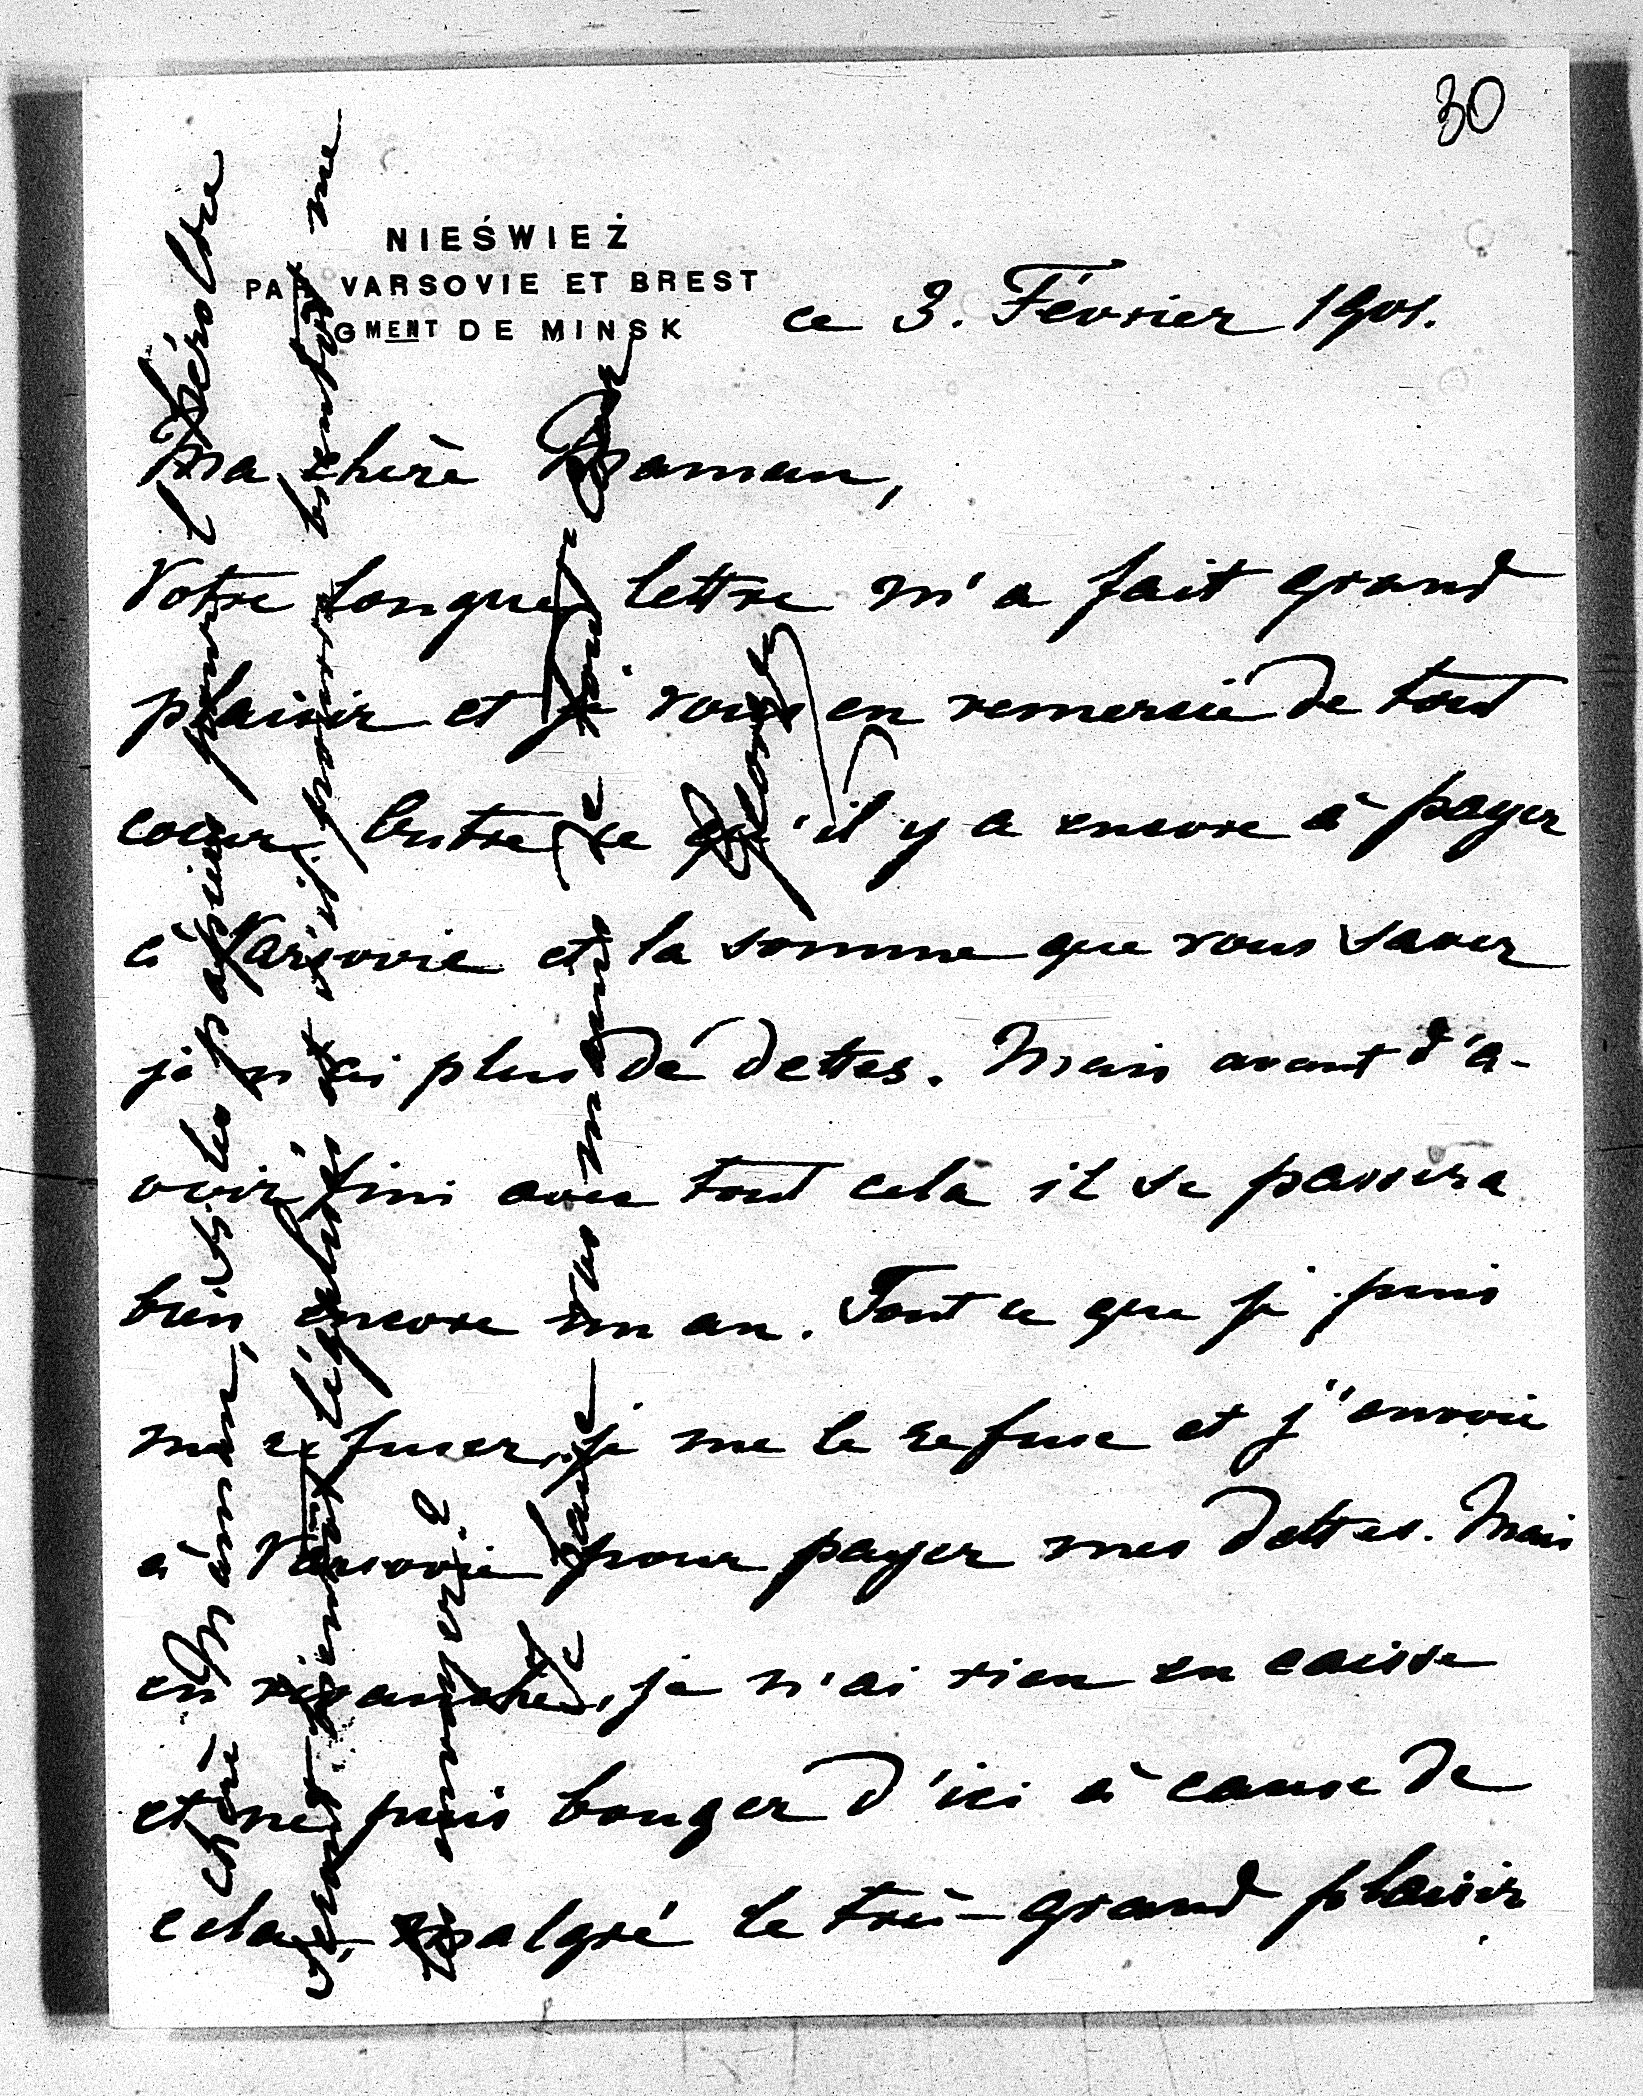 30
NIEŚWIEŻ
PAR VARSOVIE ET BREST
GMENT DE MINSK
ce 3. Février 1901.
Ma chère Maman,
Votre longue lettre m'a fait grand
plaisir et je vous en remercie de tout
coeur. Entre ce qu'il y a encore à payer
à Varsovie et la somme que vous savez
je n'ai plus de dettes. Mais avant d'a-
voir fini avec tout cela il se passera
bien encore un an. Tout ce que je puis
me refuser, je me le refuse et j'envoie
à Varsovie pour payer mes dettes. Mais
en revanche, je n'ai rien en caisse
et ne puis bouger d'ici à cause de
cela, malgré le très-grand plaisir
chère Maman, si les papiers pour
bientôt me
envoyer?
Je baise vos mains
Georges